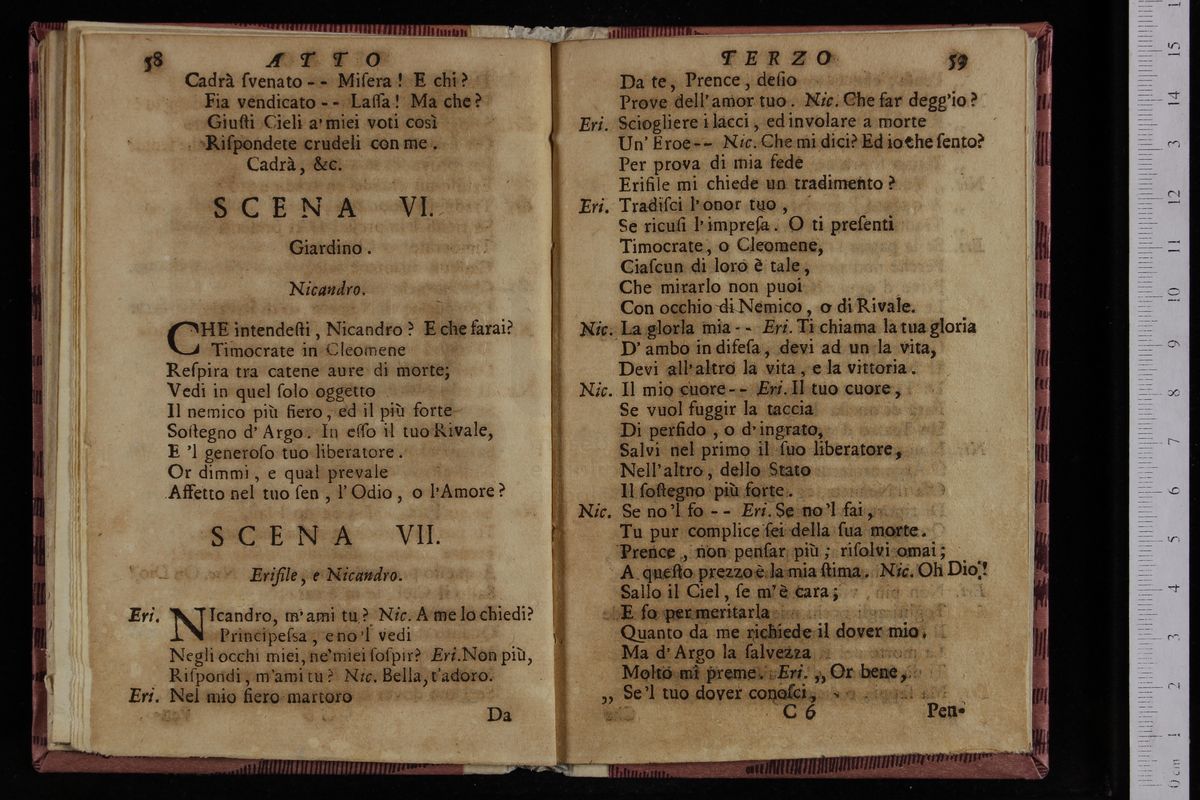 58 ATTO
Cadrà ſvenato - - Miſera ! E chi ?
Fia vendicato - - Laſſa ! Ma che ?
Giuſti Cieli a' miei voti così
Riſpondete crudeli con me .
Cadrà , &c.
SCENA VI.
Giardino .
Nicandro.
CHE intendeſti , Nicandro ? E che farai?
Timocrate in Cleomene
Reſpira tra catene aure di morte;
Vedi in quel ſolo oggetto
Il nemico più fiero , ed il più forte
Soſtegno d' Argo . In eſſo il tuo Rivale,
E 'l generoſo tuo liberatore .
Or dimmi , e qual prevale
Affetto nel tuo ſen , l' Odio , o l'Amore ?
SCENA VII.
Erifile, e Nicandro.
Eri. NIcandro, m'ami tu ? Nic. A me lo chiedi?
Principeſsa , e no 'l vedi
Negli occhi miei, ne'miei ſoſpir? Eri. Non più,
Riſpondi , m'ami tu ? Nic. Bella, t'adoro.
Eri. Nel mio fiero martoro
Da
TERZO 59
Da te, Prence , deſio
Prove dell' amor tuo . Nic. Che far degg'io ?
Eri. Sciogliere i lacci , ed involare a morte
Un' Eroe - - Nic. Che mi dici? Ed io che ſento?
Per prova di mia fede
Erifile mi chiede un tradimento ?
Eri. Tradiſci l'onor tuo ,
Se ricuſi l'impreſa . O ti preſenti
Timocrate , o Cleomene,
Ciaſcun di loro è tale ,
Che mirarlo non puoi
Con occhio di Nemico , o di Rivale.
Nic. La gloria mia - - Eri. Ti chiama la tua gloria
D' ambo in difeſa , devi ad un la vita,
Devi all'altro la vita , e la vittoria .
Nic. Il mio cuore - - Eri. Il tuo cuore ,
Se vuol fuggir la taccia
Di perfido , o d'ingrato,
Salvi nel primo il ſuo liberatore,
Nell'altro, dello Stato
Il ſoſtegno più forte .
Nic. Se no 'l fo - - Eri. Se no 'l fai ,
Tu pur complice ſei della ſua morte .
Prence , non penſar più ; riſolvi omai ;
A queſto prezzo è la mia ſtima . Nic. Oh Dio!
Sallo il Ciel , ſe m'è cara ;
E ſo per meritarla
Quanto da me richiede il dover mio .
Ma d' Argo la ſalvezza
Molto mi preme . Eri. ,, Or bene ,
,, Se 'l tuo dover conoſci ,
C 6 Pen-